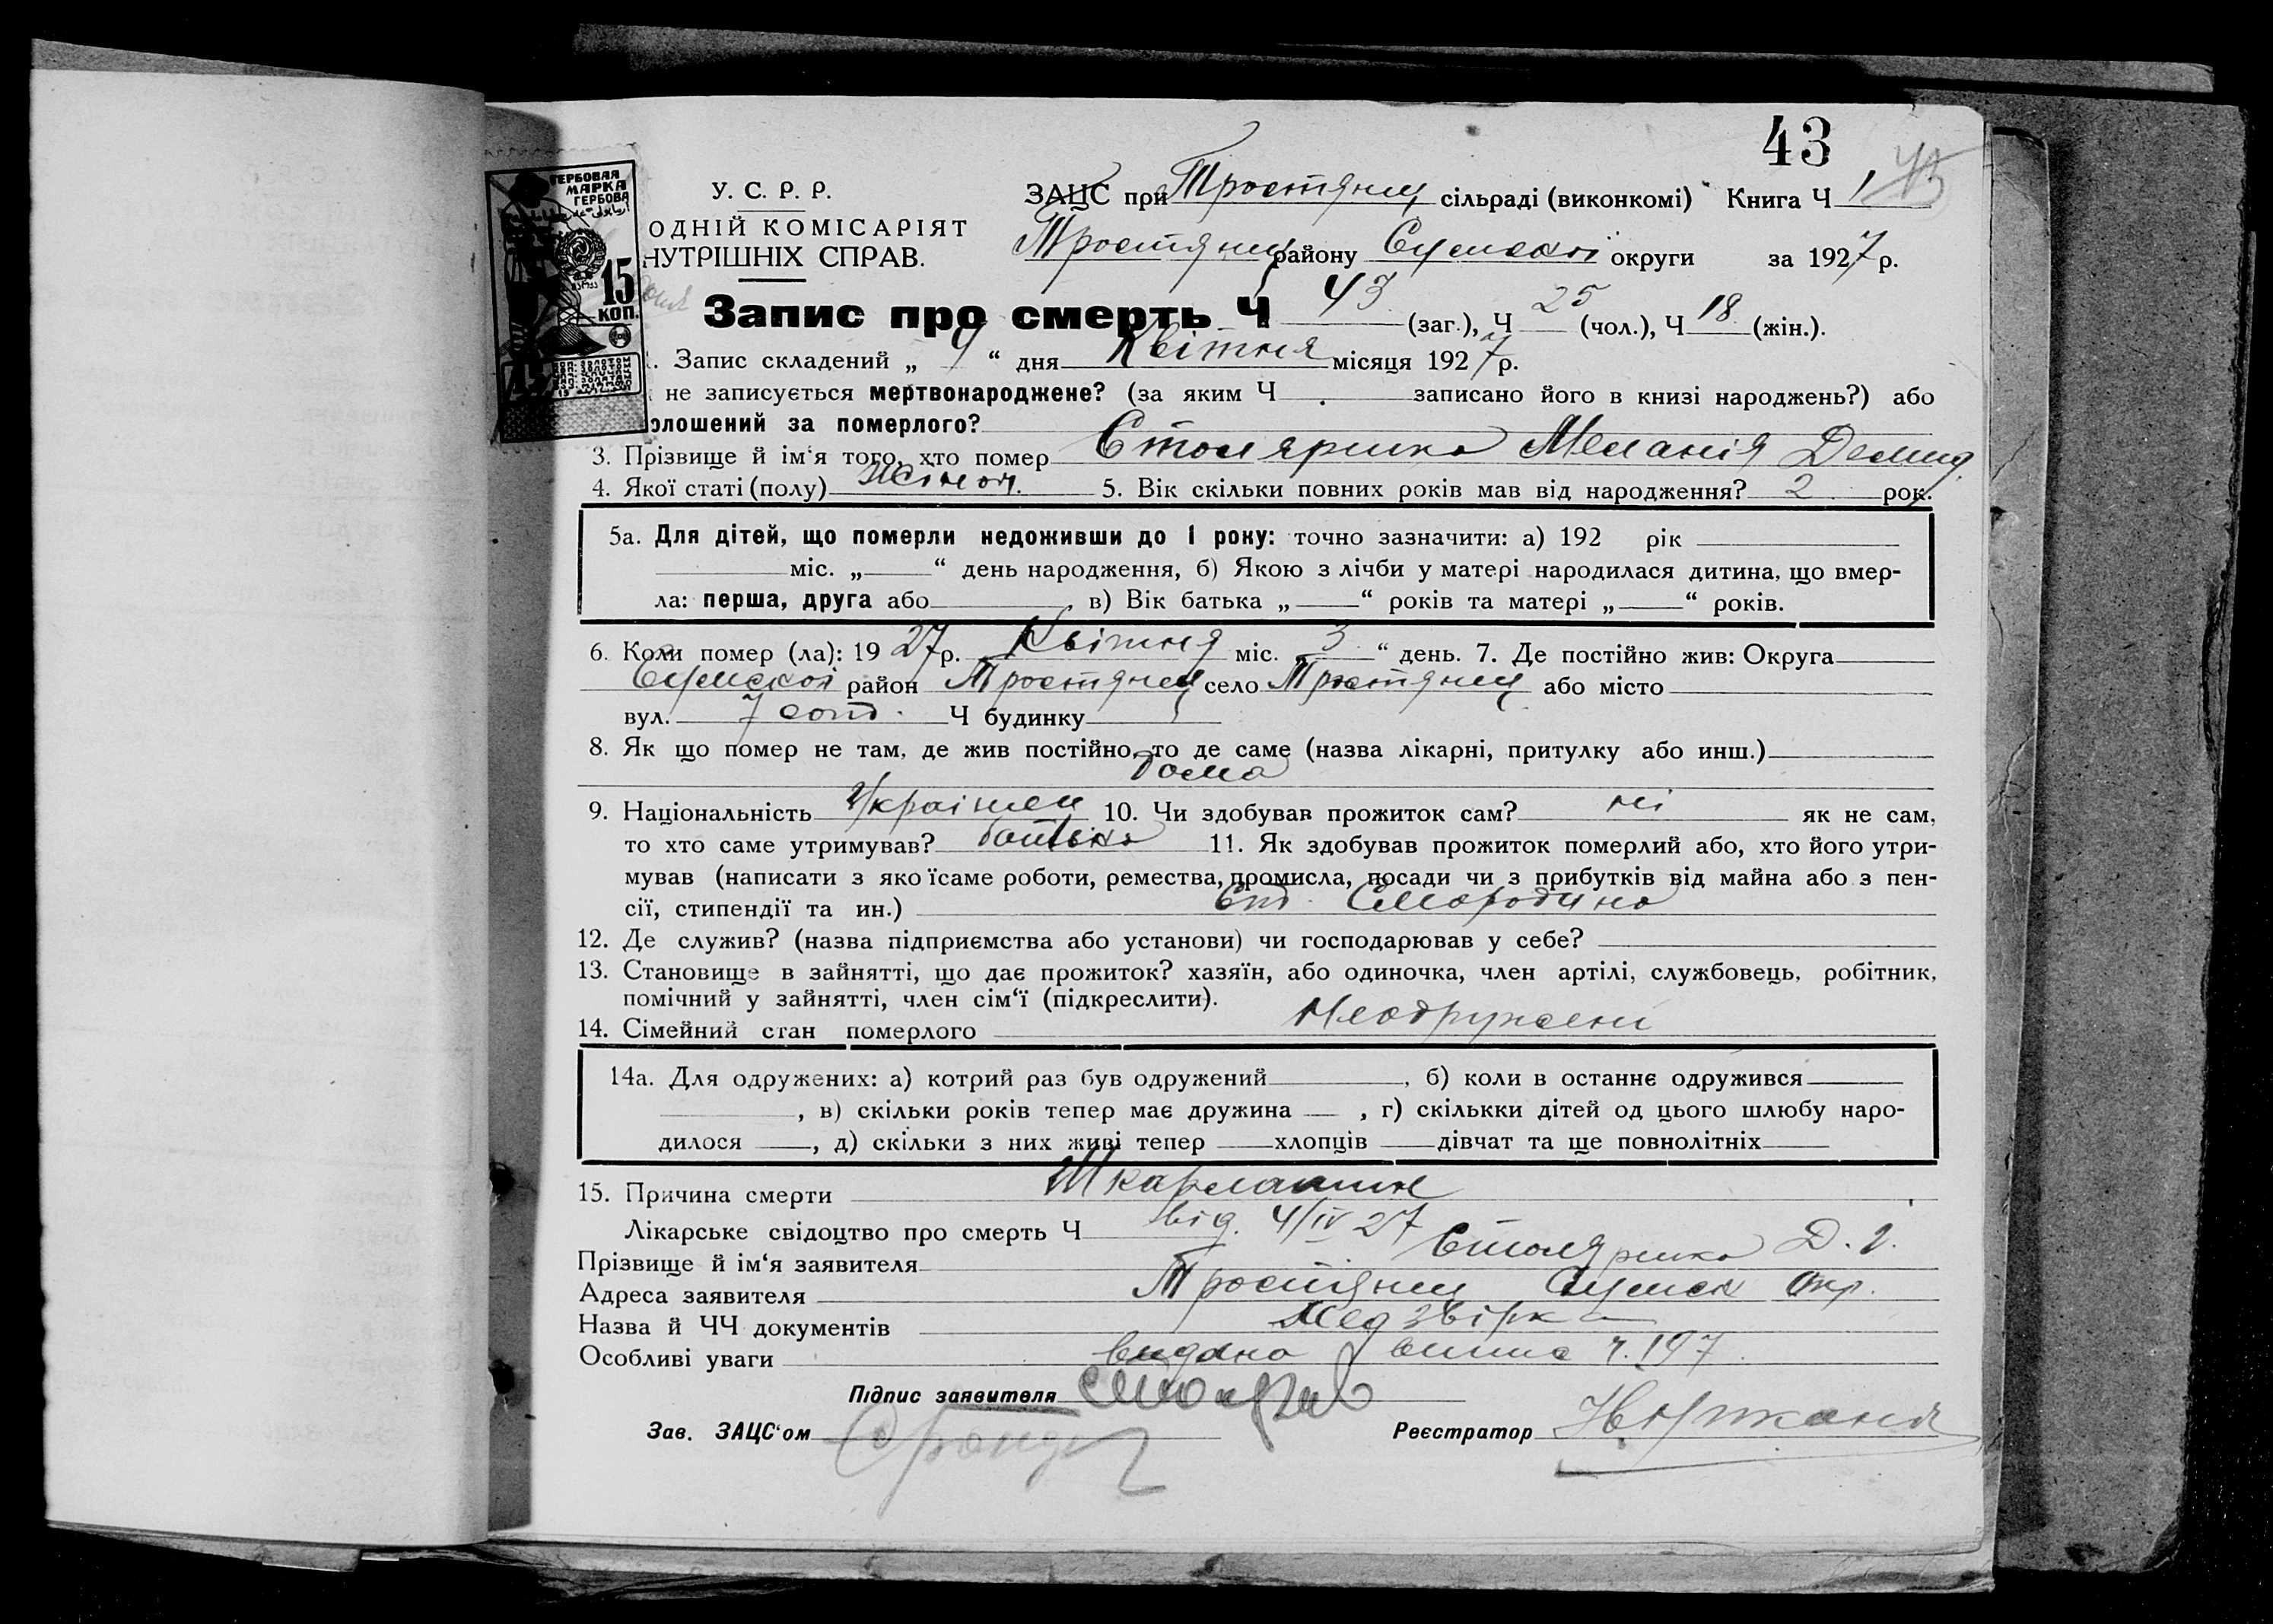 43
ГЕРБОВАЯ
МАРКА
ГЕРБОВА
15
КОП.
У. С. Р. Р.
ОДНІЙ КОМІСАРІЯТ
НУТРІШНІХ СПРАВ.
ЗАЦС при Тростянец сільраді (виконкомі) Книга Ч 1
Тростянец району Сумської округи за 1927 р.
Запис про смерть Ч 43 (заг.), Ч 25 (чол.), Ч 18 (жін.).
Запис складений „ 9 “ дня Квітня місяця 1927 р.
не записується мертвонароджене? (за яким Ч записано його в книзі народжень?) або
олошений за померлого?
3. Прізвище й ім‘я того, хто помер Столяренко Меланія Демид.
4. Якої статі (полу) жіноч. 5. Вік скільки повних років мав від народження? 2 рок.
5а. Для дітей, що померли недоживши до 1 року: точно зазначити: а) 192 рік
міс. „ “ день народження, б) Якою з лічби у матері народилася дитина, що вмер-
ла: перша, друга або , в) Вік батька „ “ років та матері „ “ років.
6. Коли помер (ла): 1927 р. Квітня міс. 3 “ день. 7. Де постійно жив: Округа
Сумской район Тростянец село Тростянец або місто
вул. 7 сот. Ч будинку
8. Як що помер не там, де жив постійно, то де саме (назва лікарні, притулку або инш.)
дома
9. Національність Українец 10. Чи здобував прожиток сам? ні як не сам,
то хто саме утримував? батько 11. Як здобував прожиток померлий або, хто його утри-
мував (написати з яко їсаме роботи, ремества, промисла, посади чи з прибутків від майна або з пен-
сії, стипендії та ин.) Ст. Смородино
12. Де служив? (назва підприємства або установи) чи господарював у себе?
13. Становище в зайнятті, що дає прожиток? хазяїн, або одиночка, член артілі, службовець, робітник,
помічний у зайнятті, член сім‘ї (підкреслити).
14. Сімейний стан померлого Неодружені
14а. Для одружених: а) котрий раз був одружений , б) коли в останнє одружився
, в) скільки років тепер має дружина , г) скількки дітей од цього шлюбу наро-
дилося , д) скільки з них живі тепер хлопців дівчат та ще повнолітніх
15. Причина смерти Шкарлатина
Лікарське свідоцтво про смерть Ч від. 4/IV 27
Прізвище й ім‘я заявителя Столяренко Д. І.
Адреса заявителя Тростянец Сумск Окр.
Назва й ЧЧ документів
Особливі уваги видана виписка ч. 197
Підпис заявителя
Зав. ЗАЦС‘ом
Реєстратор